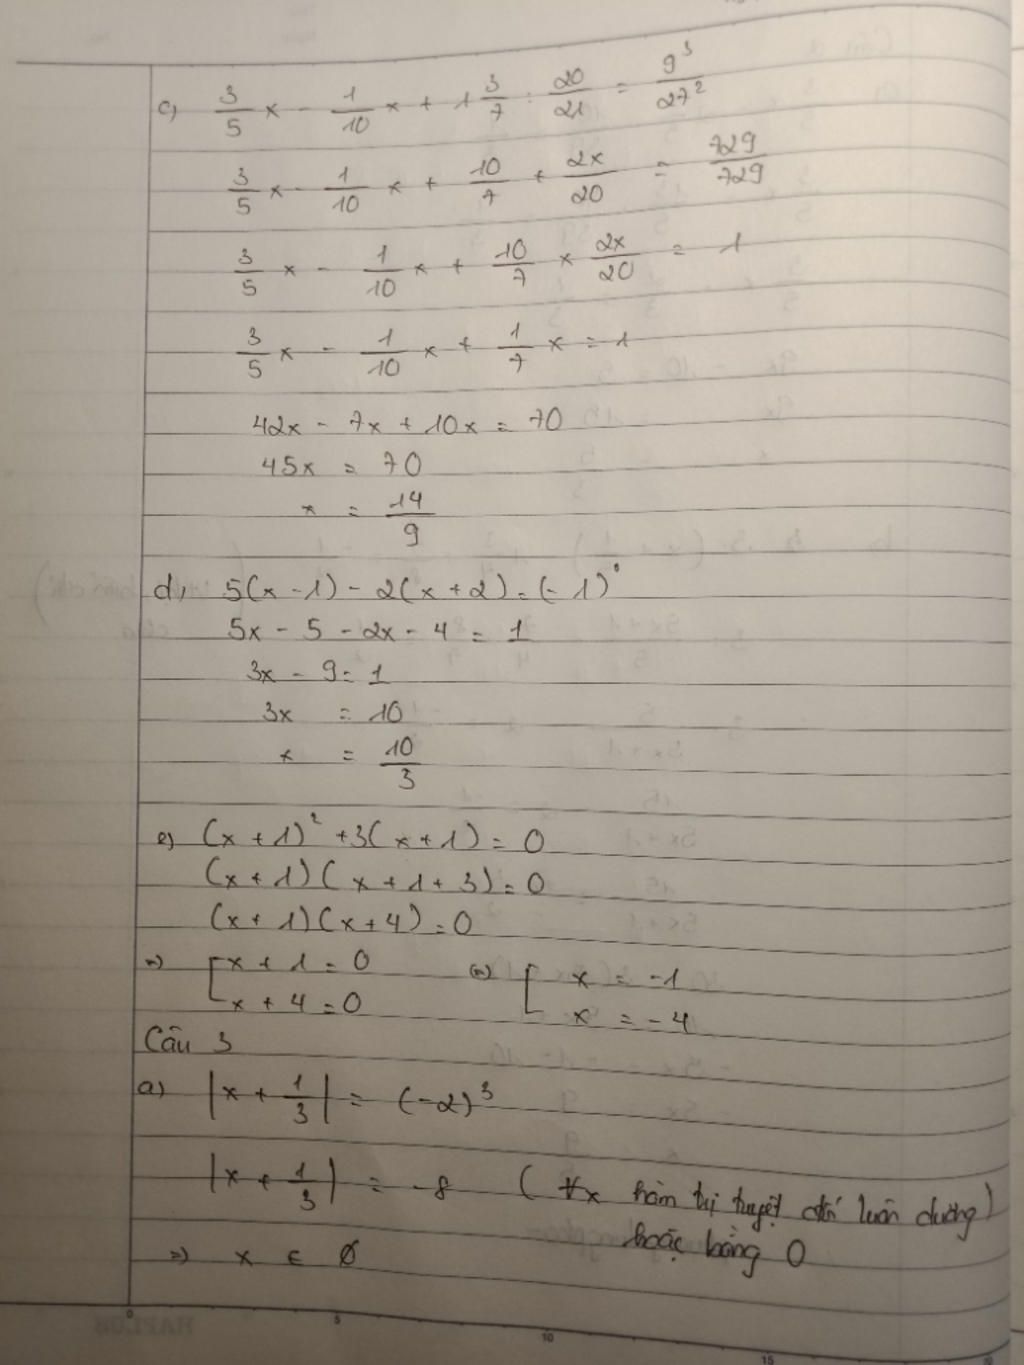 c) 3/5 x - 1/10 x + 1 3/7 : 20/21 = 9³/27²
3/5 x - 1/10 x + 10/7 + 2x/20 = 729/729
3/5 x - 1/10 x + 10/7 × 2x/20 = 1
3/5 x - 1/10 x + 1/7 x = 1
42x - 7x + 10x = 70
45x = 70
x = 14/9
d, 5(x - 1) - 2(x + 2) = (- 1)⁰
5x - 5 - 2x - 4 = 1
3x - 9 = 1
3x = 10
x = 10/3
e) (x + 1)² + 3(x + 1) = 0
(x + 1)(x + 1 + 3) = 0
(x + 1)(x + 4) = 0
=> [x + 1 = 0 (=) [x = -1
x + 4 = 0 x = -4
Câu 3
a) |x + 1/3| = (-2)³
|x + 1/3| = -8 (∀x hàm trị tuyệt đối luôn dương)
hoặc bằng 0
=> x ∈ ∅
0 5 10 15